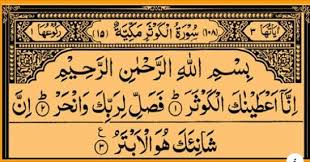 اٰیَاتُهَا ۳ (۱۰۸) سُوْرَةُ الْكَوْثَرِ مَكِّيَّةٌ (۱۵) رُكُوْعُهَا ۱
بِسْمِ اللّٰهِ الرَّحْمٰنِ الرَّحِيْمِ
اِنَّاۤ اَعْطَيْنٰكَ الْكَوْثَرَ ۝۱ فَصَلِّ لِرَبِّكَ وَانْحَرْ ۝۲ اِنَّ
شَانِئَكَ هُوَ الْاَبْتَرُ ۝۳ ع